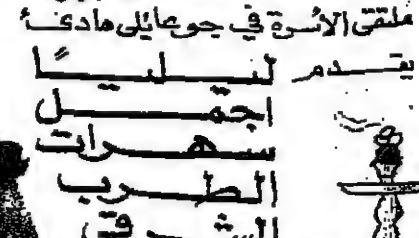 ملتقى الأسرة في جو عائلي هادئ
يقدم ليليًا
اجمل
سهرات
الطرب
الشرقي